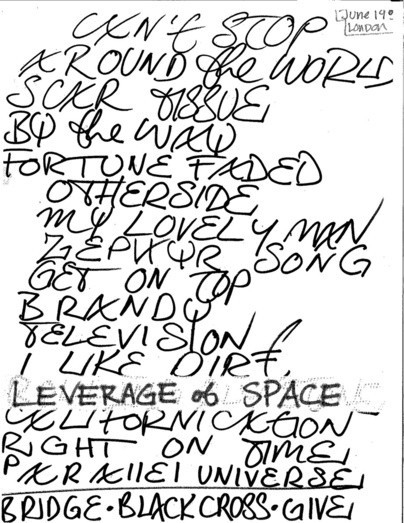 CAN'T STOP
June 19
London
AROUND the WORLD
SCAR TISSUE
BY the WAY
FORTUNE FADED
OTHERSIDE
MY LOVELY MAN
ZEPHYR SONG
GET ON TOP
BRANDY
TELEVISION
I LIKE DIRT,
LEVERAGE of SPACE
CALIFORNICATION
RIGHT ON TIME
PARALLEL UNIVERSE
BRIDGE·BLACK CROSS·GIVE